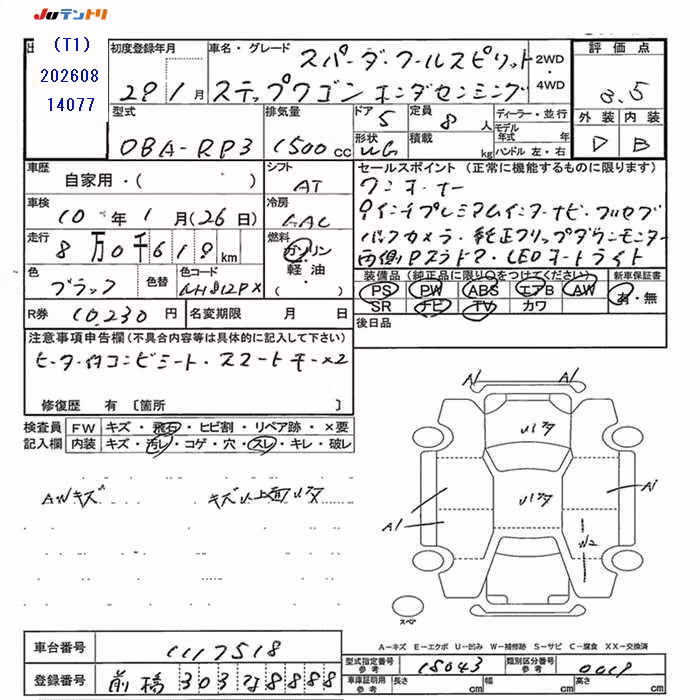 JUテントリ
(T1)
202608
14077
初度登録年月
29 1月
車名・グレード
スパーダ・クールスピリット
ステップワゴン ホンダセンシング
2WD
・
4WD
評価点
3.5
外装 内装
D B
型式
DBA-RP3
排気量
1500 cc
ドア
5
形状
WG
定員
8 人
積載
kg
ディーラー・並行
モデル年式 年
ハンドル 左・右
車歴
自家用・( )
シフト
AT
車検
10年1月(26日)
冷房
AAC
走行
8万0千619 km
燃料
ガソリン
軽油・
( )
色
ブラック
色替
色コード
NH812PX
R券 10,230 円
名変期限 月 日
セールスポイント (正常に機能するものに限ります)
ワンオーナー
9インチプレミアムインターナビ・フルセグ
バックカメラ・純正フリップダウンモニター
両側Pスライドドア・LEDオートライト
装備品(純正品に限り○をつけてください)
新車保証書
PS PW ABS エアB AW
有・無
SR ナビ TV カワ
後日品
注意事項申告欄(不具合内容等は具体的に記入して下さい)
ヒーター付コンビシート・スマートキー×2
修復歴 有 [箇所 ]
検査員 FW キズ・飛石・ヒビ割・リペア跡・×要
記入欄 内装 キズ・汚レ・コゲ・穴・スレ・キレ・破レ
AWキズ
A1 A1
A1
A1
W2
スペア
A-キズ E-エクボ U-凹み W-補修跡 S-サビ C-腐食 XX-交換済
車台番号 1117518
登録番号 前橋 303 な 8888
型式指定番号
参考
18043
類別区分番号
参考
0019
車庫証明用
参考
長さ cm 幅 cm 高さ cm